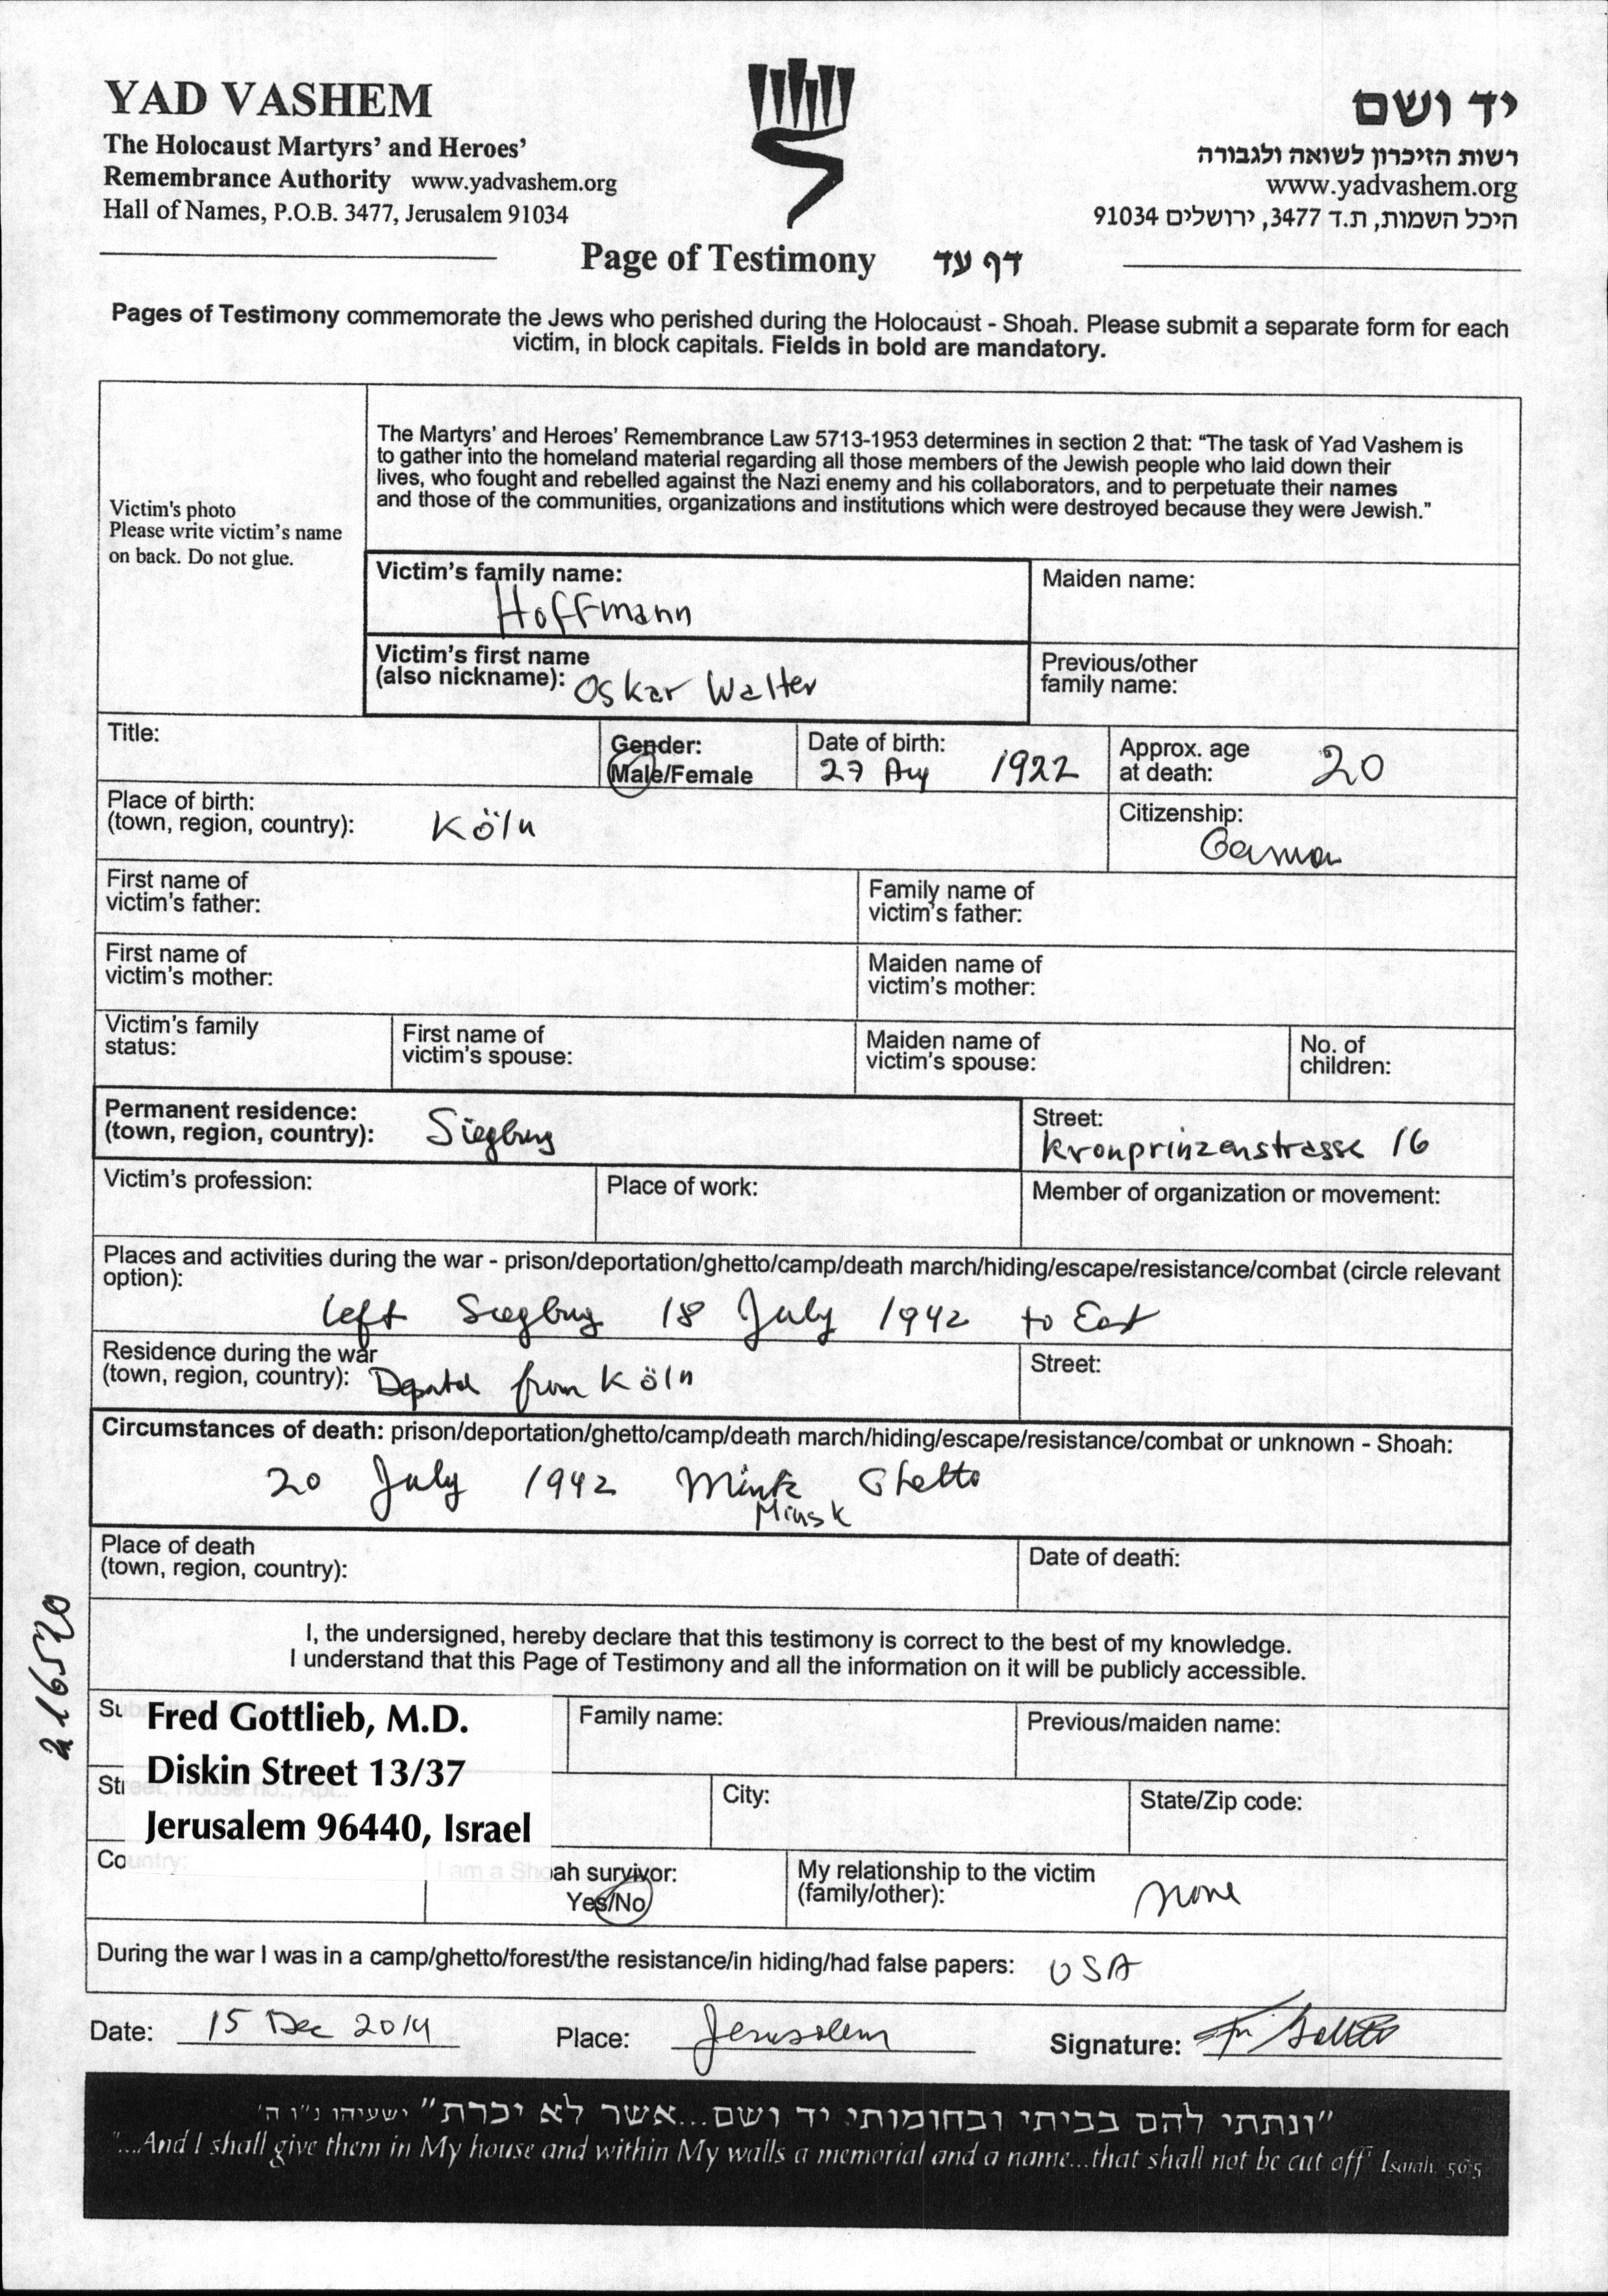 YAD VASHEM
The Holocaust Martyrs' and Heroes'
Remembrance Authority www.yadvashem.org
Hall of Names, P.O.B. 3477, Jerusalem 91034
יד ושם
רשות הזיכרון לשואה ולגבורה
www.yadvashem.org
היכל השמות, ת.ד 3477, ירושלים 91034
Page of Testimony דף עד
Pages of Testimony commemorate the Jews who perished during the Holocaust - Shoah. Please submit a separate form for each
victim, in block capitals. Fields in bold are mandatory.
Victim's photo
Please write victim's name
on back. Do not glue.
The Martyrs' and Heroes' Remembrance Law 5713-1953 determines in section 2 that: "The task of Yad Vashem is
to gather into the homeland material regarding all those members of the Jewish people who laid down their
lives, who fought and rebelled against the Nazi enemy and his collaborators, and to perpetuate their names
and those of the communities, organizations and institutions which were destroyed because they were Jewish."
Victim's family name:
Hoffmann
Maiden name:
Victim's first name
(also nickname): Oskar Walter
Previous/other
family name:
Title:
Gender:
Male/Female
Date of birth:
27 Aug 1922
Approx. age
at death: 20
Place of birth:
(town, region, country): Köln
Citizenship:
German
First name of
victim's father:
Family name of
victim's father:
First name of
victim's mother:
Maiden name of
victim's mother:
Victim's family
status:
First name of
victim's spouse:
Maiden name of
victim's spouse:
No. of
children:
Permanent residence:
(town, region, country): Siegburg
Street:
Kronprinzenstrasse 16
Victim's profession:
Place of work:
Member of organization or movement:
Places and activities during the war - prison/deportation/ghetto/camp/death march/hiding/escape/resistance/combat (circle relevant
option):
left Siegburg 18 July 1942 to East
Residence during the war
(town, region, country): Deported from Köln
Street:
Circumstances of death: prison/deportation/ghetto/camp/death march/hiding/escape/resistance/combat or unknown - Shoah:
20 July 1942 Ghetto
Minsk
Place of death
(town, region, country):
Date of death:
I, the undersigned, hereby declare that this testimony is correct to the best of my knowledge.
I understand that this Page of Testimony and all the information on it will be publicly accessible.
216520
Fred Gottlieb, M.D.
Diskin Street 13/37
Jerusalem 96440, Israel
Family name:
Previous/maiden name:
City:
State/Zip code:
Country:
I am a Shoah survivor:
Yes/No
My relationship to the victim
(family/other): none
During the war I was in a camp/ghetto/forest/the resistance/in hiding/had false papers: USA
Date: 15 Dec 2014 Place: Jerusalem Signature:
"ונתתי להם בביתי ובחומותי יד ושם...אשר לא יכרת" ישעיהו נ"ו ה'
"...And I shall give them in My house and within My walls a memorial and a name...that shall not be cut off" Isaiah 56:5